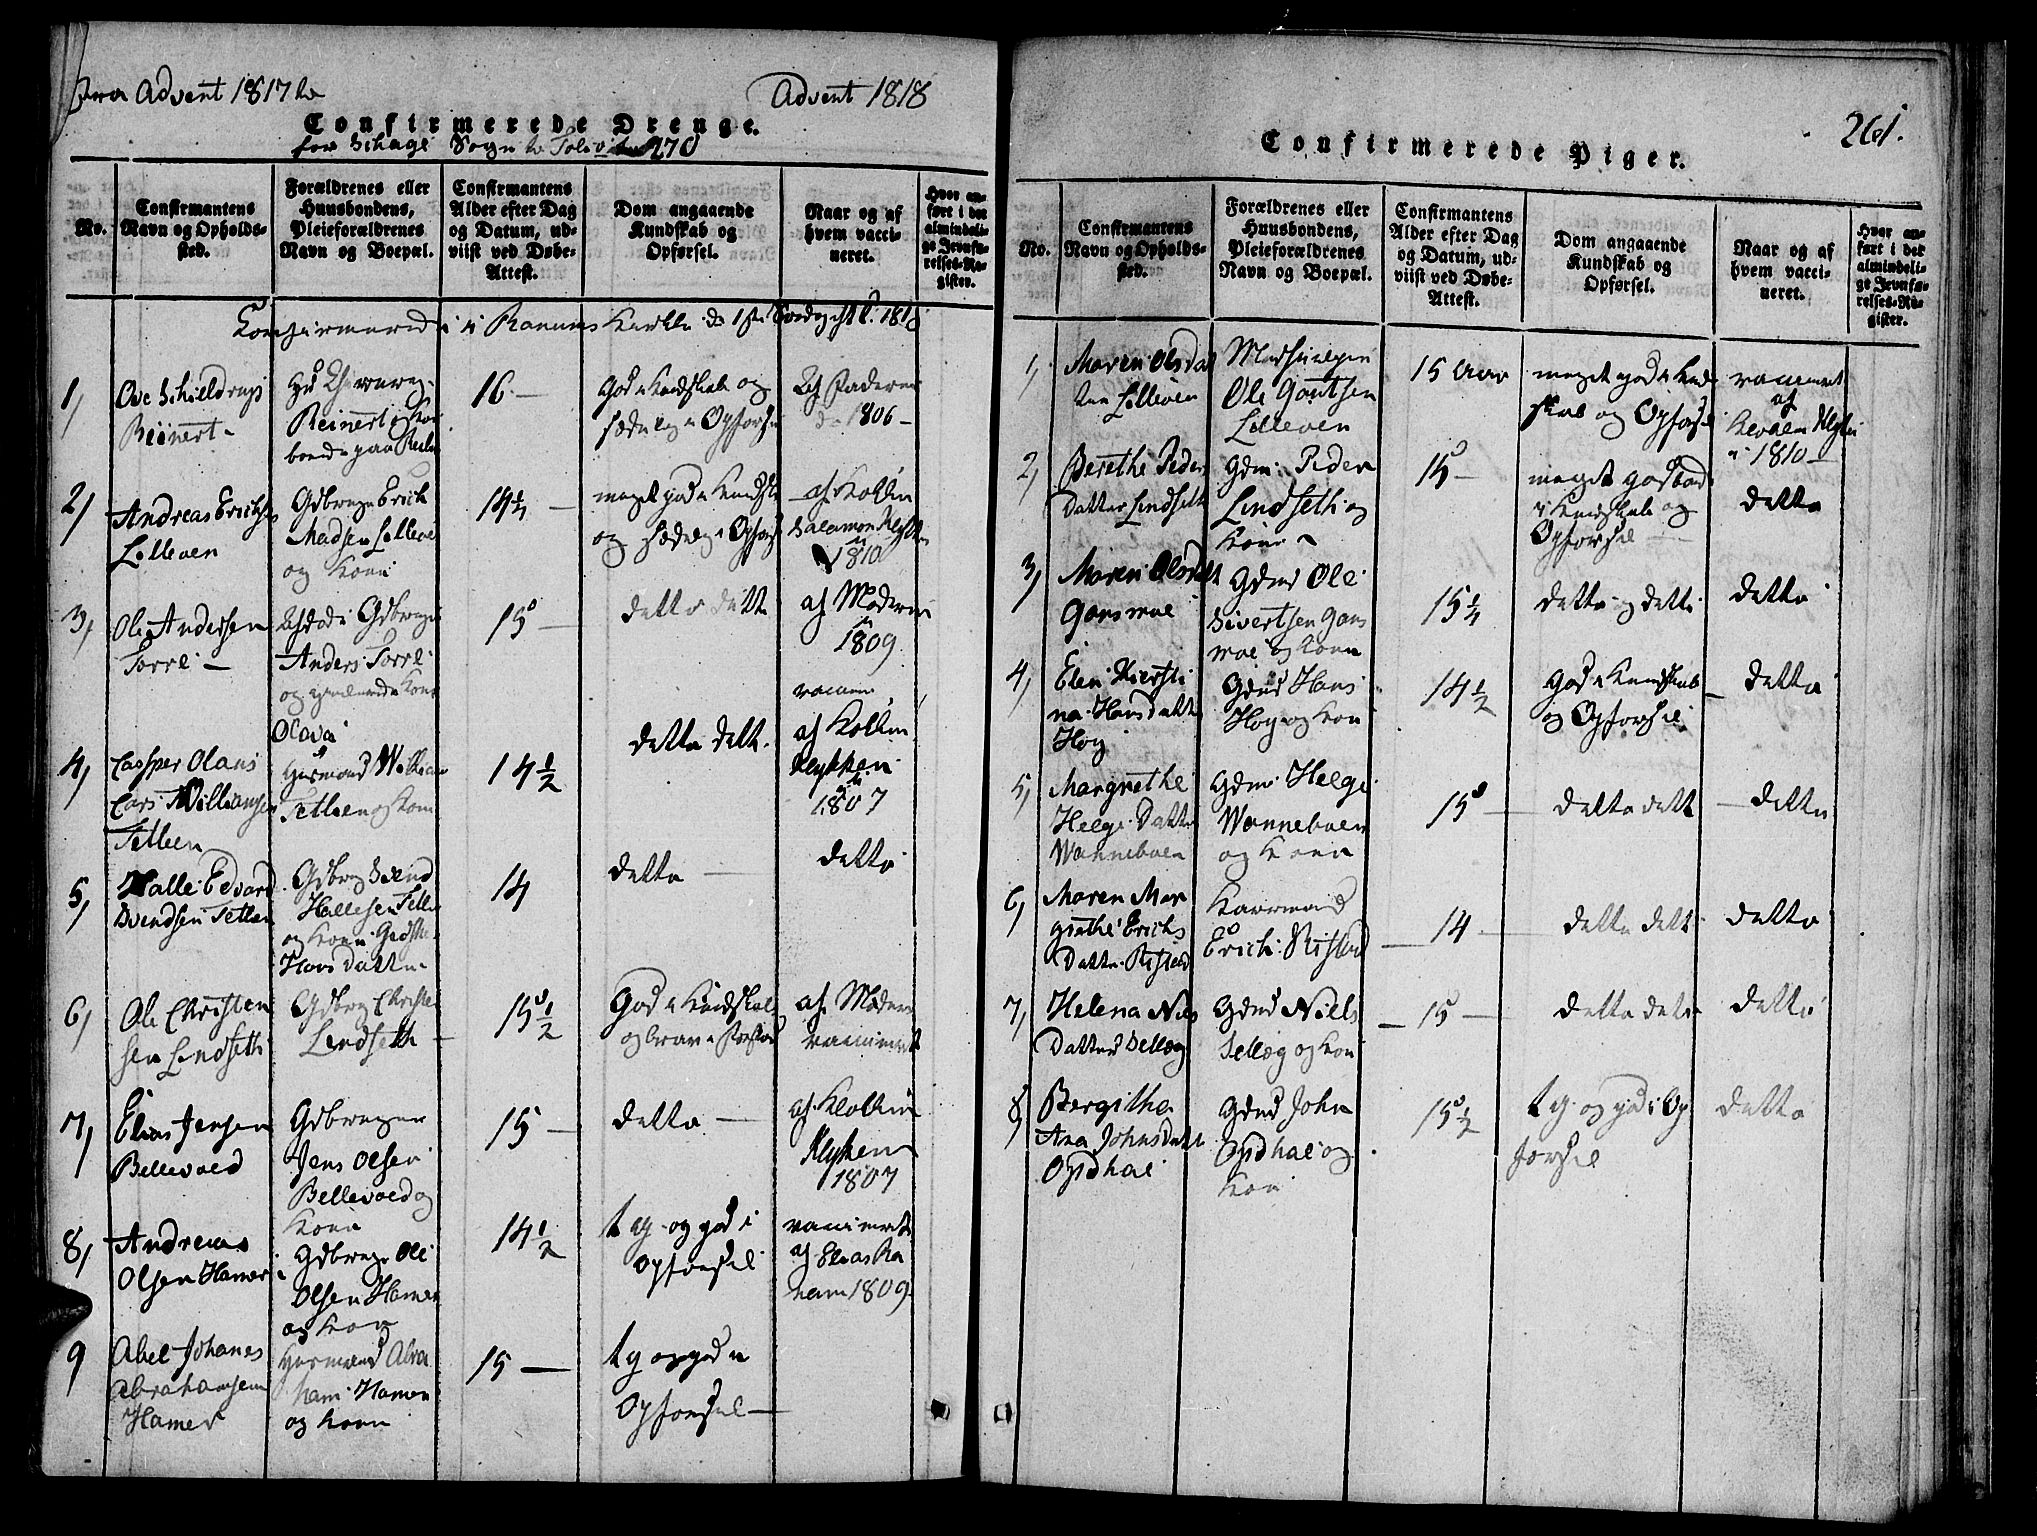 Fra Advent 1817 til
Advent 1818
Confirmerede Drenge.
for Schage Sogn
No.
Confirmantens
Navn og Opholds-
sted.
Forældrenes eller
Huusbondens,
Pleieforældrenes
Navn og Boepæl.
Confirmantens
Alder efter Dag
og Datum, ud-
viist ved Døbe-
Attest.
Dom angaaende
Kundskab og
Opførsel.
Naar og af
hvem vacci-
neret.
Hvor an-
ført i det
almindeli-
ge Jevnfø-
relses-Re-
gister.
i Ranums Kirke
1,
Ove Schieldrups
Reinert
16 -
God Kundskab og
sædelig Opførsel
Af Faderen
1806 -
2,
Andreas Erichsen
Lilleven
Gdbruger Erich
Madsen Lilleven
og Kone
14 1/4
meget god Kundskab
og sædelig Opførsel
af Kolbein
Salamon Klykken
1810
3,
Ole Andersen
Torre -
Afdøde Gdbruger
Anders Torre
og Kone
Olava
15 -
detto dett
af Moderen
1809
4,
Casper Olaus
Lars Williamsen
Tetlien
Huusmand William
Tetlien og Kone
14 1/2
detto dett
af Kolbein
Klykken
1807
5,
Halle Edvard
Svendsen Tetlien
Gdbrug Svend
Hallesen Tetlien
og Kone
Hans datter
14
detto -
detto
6,
Ole Christen
sen Lindseth
Gdbrug Christen
Lindseth
15 1/2
God Kundskab
af Moderen
vaccineret
7,
Elias Jensen
Bellevold
Gdbruger
Jens Olsen
Bellevold og
Kone
15 -
detto -
af Kolbein
Klykken
1807
8,
Andreas
Olsen Hamer
Gdbruger Ole
Olsen Hamer
og Kone
14 1/2
tg og god i
Opførsel
vaccineret
af Elias Ra
num 1809
9
Abel Johanes
Abrahamsen
Hamer
Huusmand Abra
ham Hamer
og Kone
15 -
tg og god i
Opførsel -
261.
Confirmerede Piger.
No.
Confirmantens
Navn og Opholds-
sted.
Forældrenes eller
Huusbondens,
Pleieforældrenes
Navn og Boepæl.
Confirmantens
Alder efter Dag
og Datum, ud-
viist ved Døbe-
Attest.
Dom angaaende
Kundskab og
Opførsel.
Naar og af
hvem vacci-
neret.
Hvor an-
ført i det
almindeli-
ge Jevnfø-
relses-Re-
gister.
1,
Maren Olsdat
ter Lilleven
Ole Gautsen
Lilleven
15 Aar
meget god Kund
skab og Opførsel
vaccineret
af
Kolbein Klykken
1810 -
2,
Berethe Peders
Datter Lindseth
Gdm: Peder
Lindseth og
Kone
15 -
meget god
i Kundskab og
Opførsel
detto
3,
Maren Olsdatt
Gansmoe
Gdmd Ole
Sivertsen Gans
moe og Kone
15 1/4
detto og detto
detto
4,
Elen Kiersti
na Hansdatter
Hoy
Gdmd Hans
Hoy og Kone
14 1/2
god Kundskab
og Opførsel
detto
5,
Margrethe
Helge Datter
Wanneboen
Gdm: Helge
Wanneboen
og Kone
15 -
detto dett
detto
6,
Maren Mar
grethe Erichs
Datter Ristad
Erich Ristad
14
detto dett
detto
7,
Helena Niels
Datter Selleg
Gdmd Niels
Selleg og Kone
15 -
detto detto
detto
8,
Bergitha
Ana Johnsdatt
Opdhal
Gdmd John
Opdhal og
Kone
15 1/2
tg og god i Op
førsel
detto